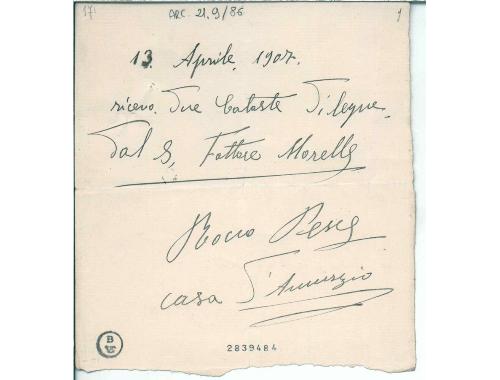 171 ARC. 21.9/86 1
13 Aprile, 1907.
ricevo. Due Cataste Di legne,
Dal S, Fattore Morelli
Rocco Pesce
casa D'Annunzio
B
2839484